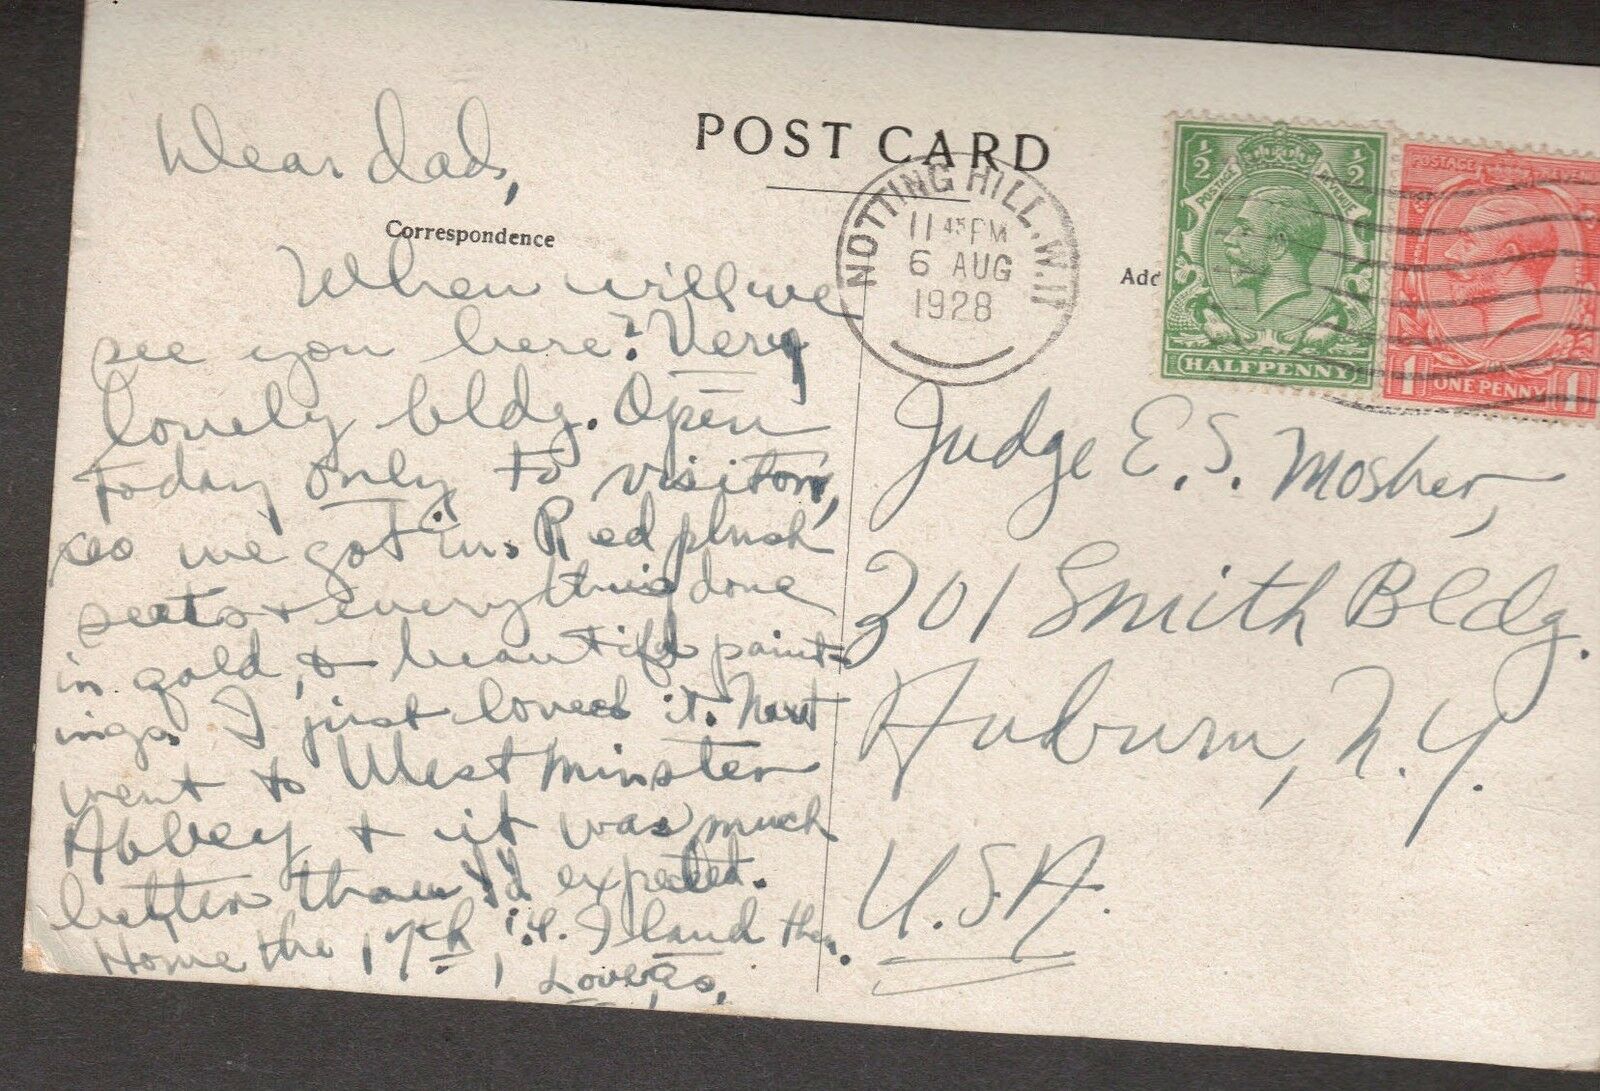 POST CARD
Correspondence
Add
NOTTING HILL. W. 11
11 45 PM
6 AUG
1928
½ ½
POSTAGE REVENUE
HALFPENNY
POSTAGE REVENUE
1 ONE PENNY 1
Dear Dad,
When will we
see you here? Very
lovely bldg. Open
today only to visitors,
so we got in. Red plush
seats & everything done
in gold, & beautiful paint-
ings. I just loved it. Next
went to Westminster
Abbey & it was much
better than I'd expected.
Home the 17th, i.e. I land then.
Love,
Judge E. S. Mosher,
301 Smith Bldg.
Auburn, N.Y.
U.S.A.